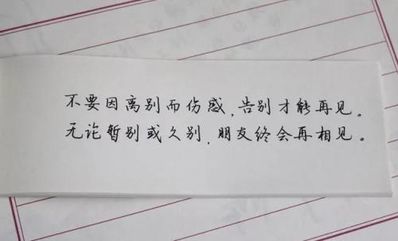 不要因离别而伤感，告别才能再见。
无论暂别或久别，朋友终会再相见。